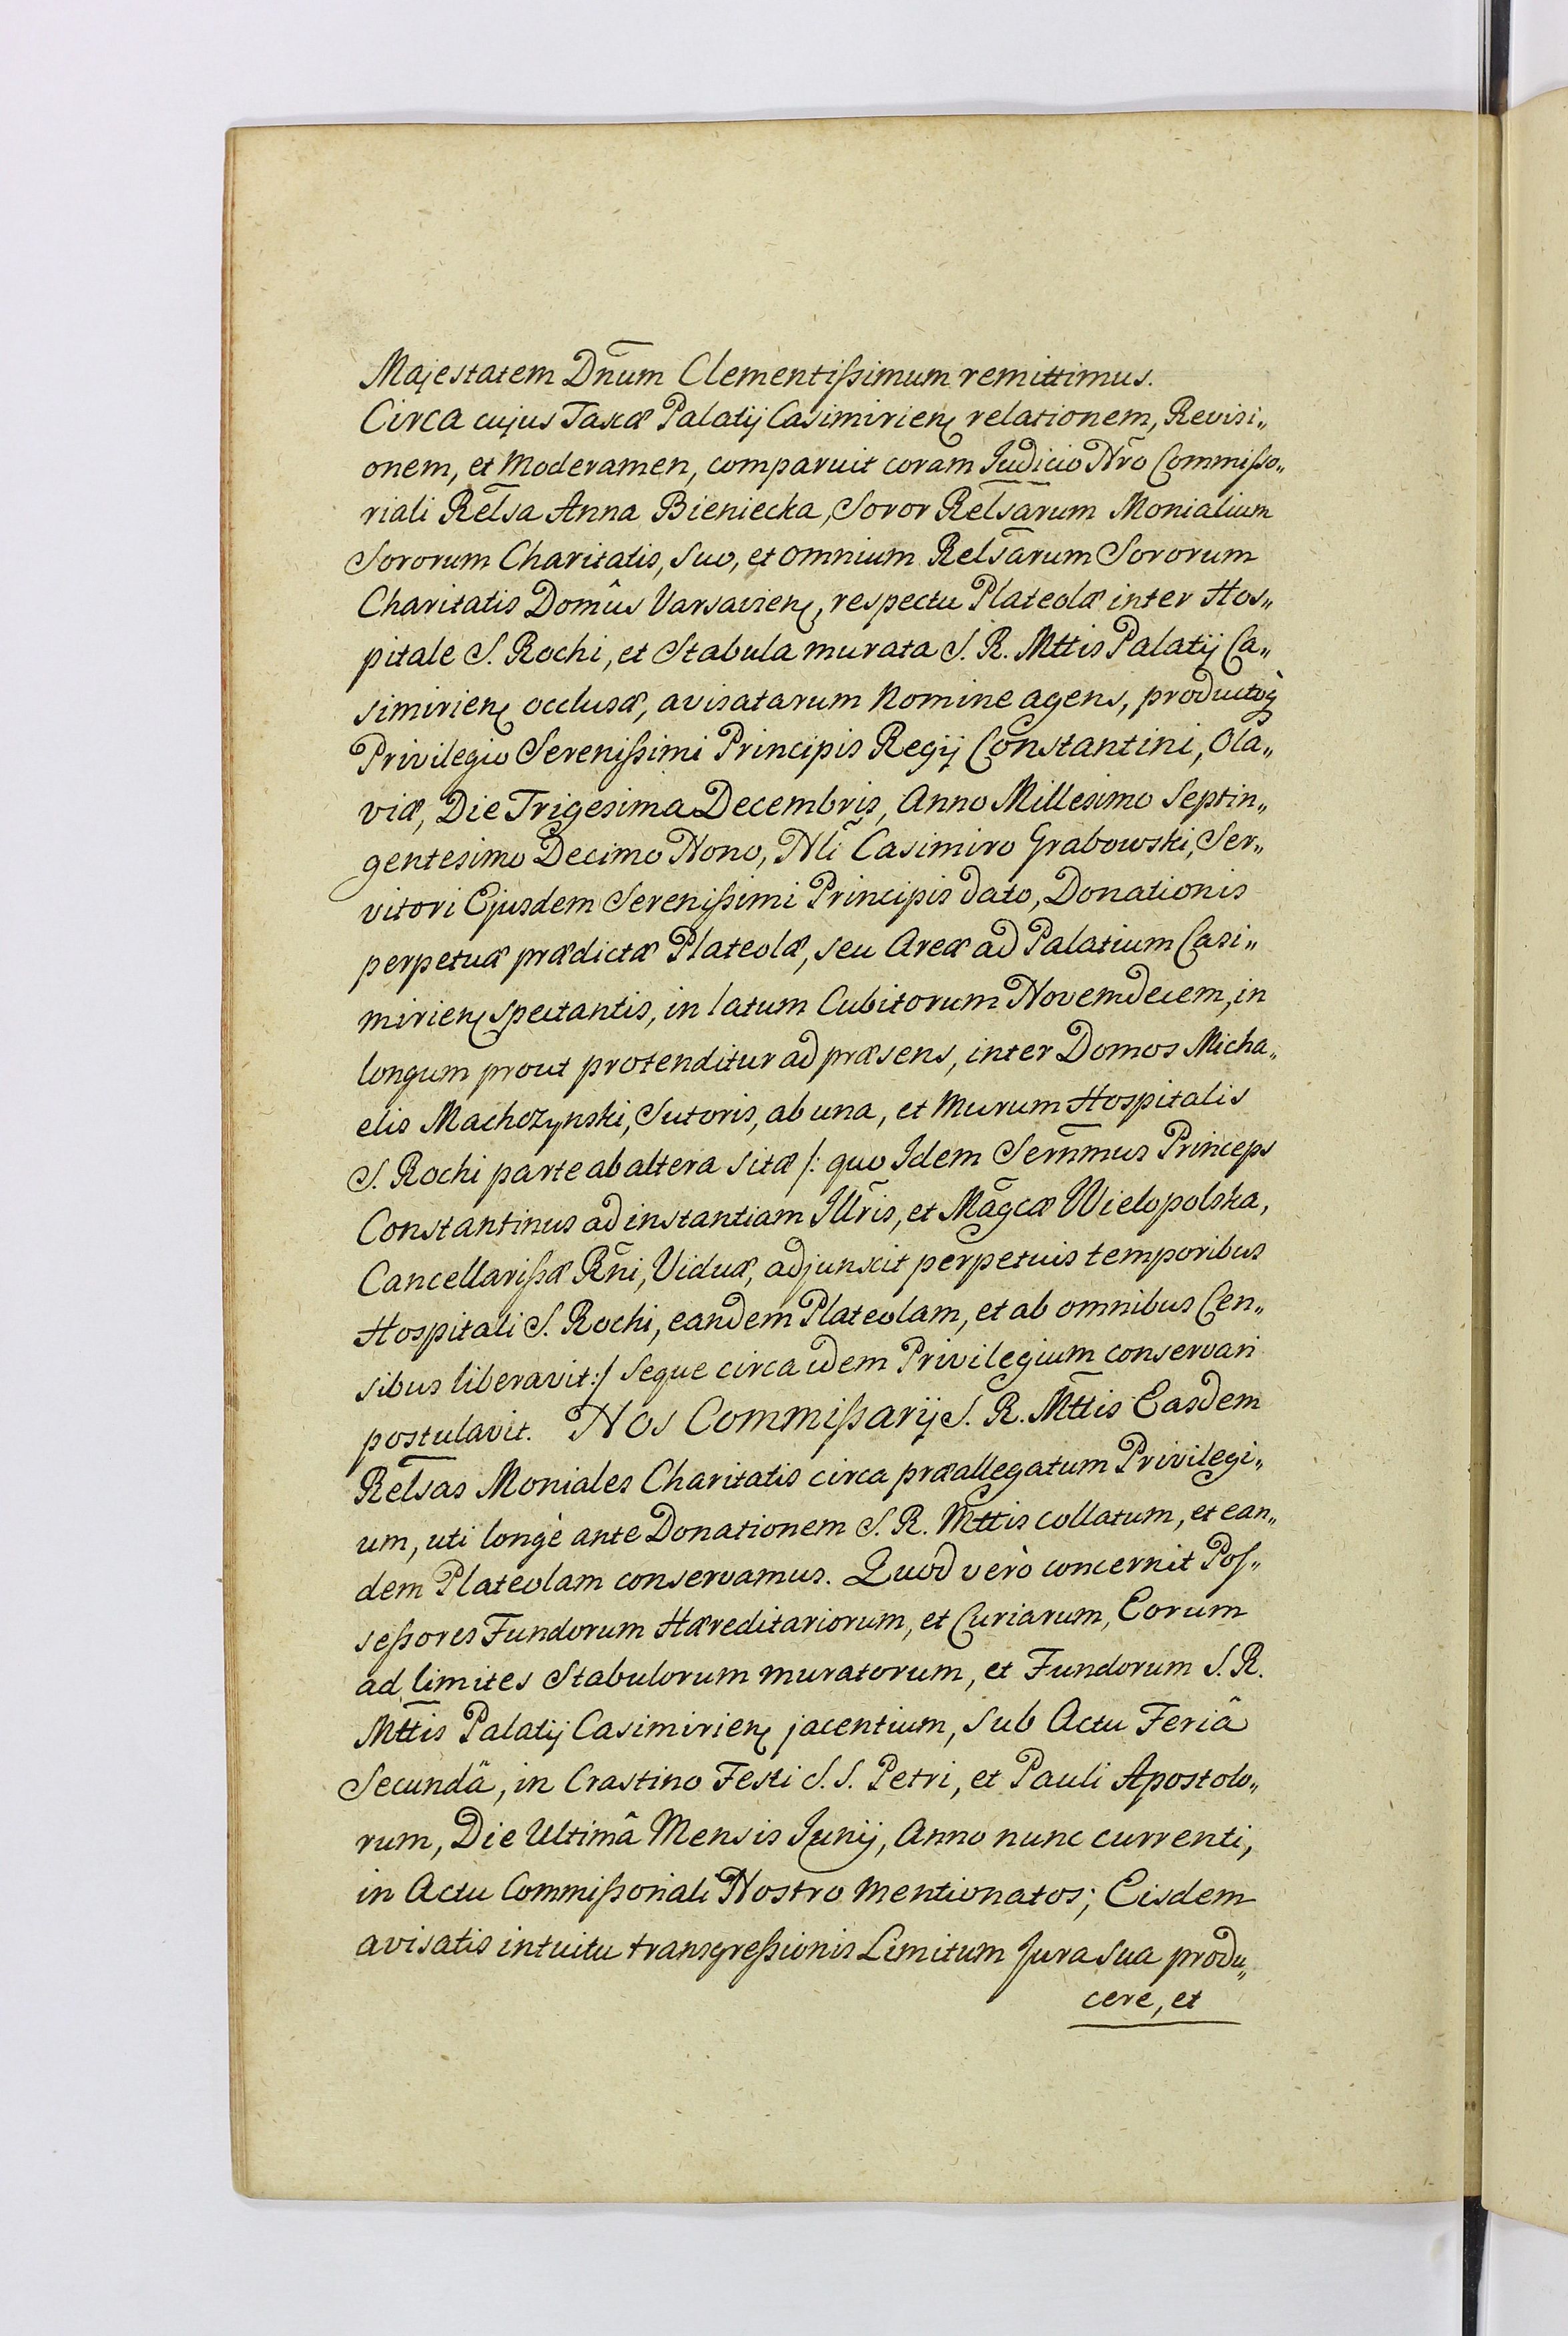 Majestatem Dn̄um Clementißimum remittimus.
Circa cujus Taxæ Palatij Casimirien̨ relationem, Revisi„
onem, et Moderamen, comparuit coram Judicio Nr̄o Commißo„
riali Rel̄sa Anna Bieniecka, Soror Rel̄sarum Monialium
Sororum Charitatis, suo, et omnium Rel̄sarum Sororum
Charitatis Domûs Varsavien̨, respectu Plateolæ inter Hos„
pitale S. Rochi, et Stabula murata S. R. Mttis Palatij Ca„
simirien̨ occlusæ, avisatarum Nomine agens, productoq̀
Privilegio Serenißimi Principis Regij Constantini, Ola„
viæ, Die Trigesima Decembris, Anno Millesimo Septin„
gentesimo Decimo Nono, Nl̄i Casimiro Grabowski, Ser„
vitori Ejusdem Serenißimi Principis dato, Donationis
perpetuæ prædictæ Plateolæ, seu Areæ ad Palatium Casi„
mirien̨ spectantis, in latum Cubitorum Novemdecem, in
longum prout protenditur ad præsens, inter Domos Micha„
elis Machczynski, Sutoris, ab una, et Murum Hospitalis
S. Rochi parte ab altera sitæ /: quo Idem Sern̄mus Princeps
Constantinus ad instantiam Illr̄is, et Māgcæ Wielopolska,
Cancellarißæ Rn̄i, Viduæ, adjunxit perpetuis temporibus
Hospitali S. Rochi, eandem Plateolam, et ab omnibus Cen„
sibus liberavit :/ seque circa idem Privilegium conservari
postulavit. Nos Commißarij S. R. Mt̄tis Easdem
Rel̄sas Moniales Charitatis circa præallegatum Privilegi„
um, uti longè ante Donationem S. R. Mt̄tis collatum, et ean„
dem Plateolam conservamus. Quod verò concernit Pos„
seßores Fundorum Hæreditariorum, et Curiarum, Eorum
ad limites Stabulorum muratorum, et Fundorum S. R.
Mt̄tis Palatij Casimirien̨ jacentium, sub Actu Feriâ
Secundâ, in Crastino Festi S. S. Petri, et Pauli Apostolo„
rum, Die Ultimâ Mensis Junij, Anno nunc currenti,
in Actu Commißoriali Nostro mentionatos; Eisdem
avisatis intuitu transgreßionis Limitum Jura sua produ„
cere, et